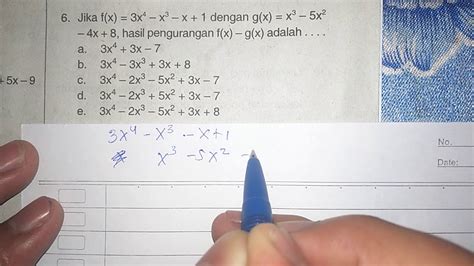 6. Jika f(x) = 3x⁴ – x³ – x + 1 dengan g(x) = x³ – 5x²
– 4x + 8, hasil pengurangan f(x) – g(x) adalah . . . .
a. 3x⁴ + 3x – 7
b. 3x⁴ – 3x³ + 3x + 8
+ 5x – 9
c. 3x⁴ – 2x³ – 5x² + 3x – 7
d. 3x⁴ – 2x³ + 5x² + 3x – 7
e. 3x⁴ – 2x³ – 5x² + 3x + 8
3x⁴ – x³ – x + 1
x³ – 5x² –
No.
Date: